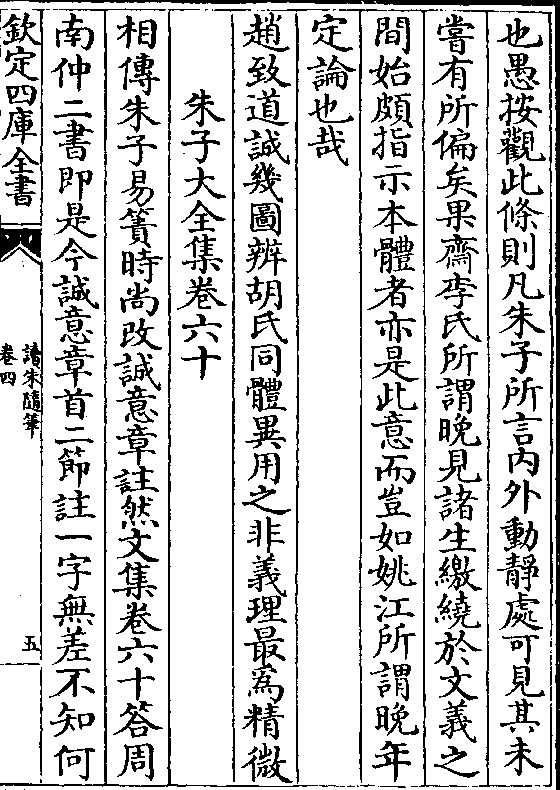 也愚按觀此條則凡朱子所言内外動靜處可見其未
嘗有所偏矣果齋李氏所謂晚見諸生繳繞於文義之
間始頗指示本體者亦是此意而豈如姚江所謂晚年
定論也哉
趙致道誠幾圖辨胡氏同體異用之非義理最爲精微
朱子大全集卷六十
相傳朱子易簀時尚改誠意章註然文集卷六十答周
南仲二書即是今誠意章首二節註一字無差不知何
欽定四庫全書
讀朱隨筆
卷四
五